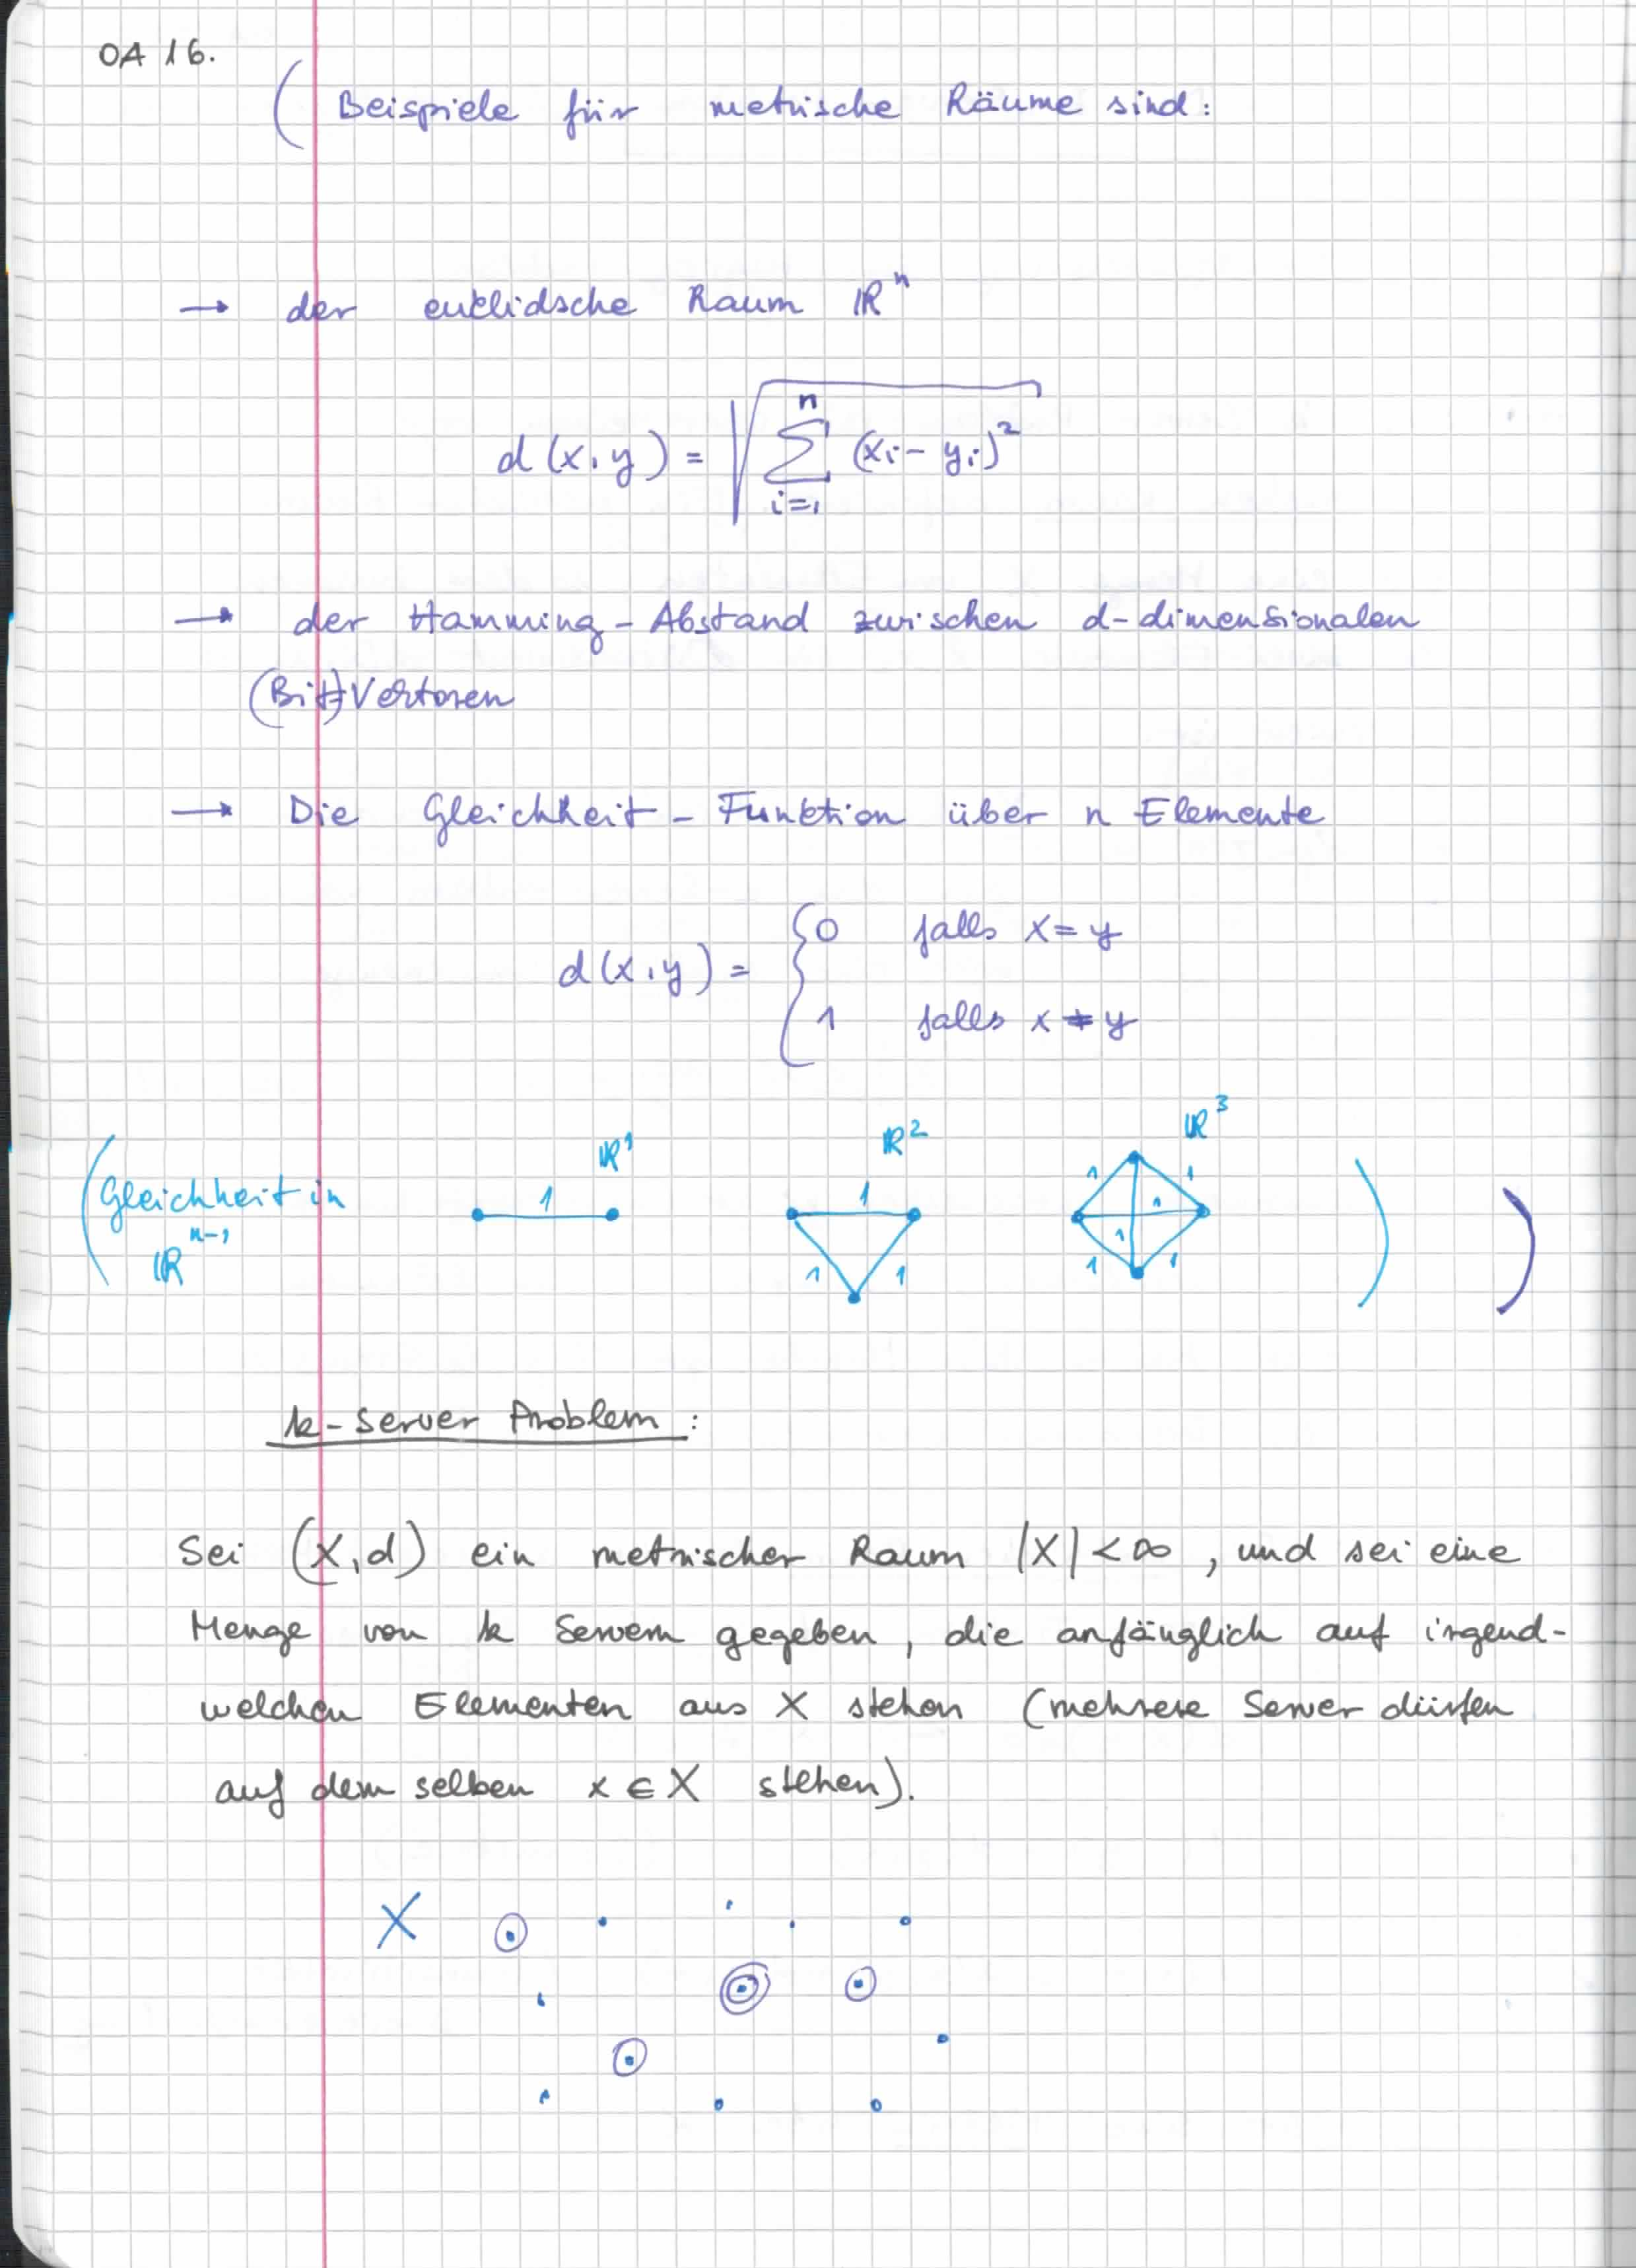 OA 16.
( Beispiele für metrische Räume sind:
→ der euklidsche Raum ℝⁿ
d(x,y) = √ ∑ᵢ₌₁ⁿ (xᵢ - yᵢ)²
→ der Hamming-Abstand zwischen d-dimensionalen
(Bit-)Vektoren
→ Die Gleichheit-Funktion über n Elemente
d(x,y) = { 0 falls x = y
1 falls x ≠ y
( Gleichheit in ℝⁿ⁻¹
ℝ¹
1
ℝ²
1
1 1
ℝ³
1 1
1
1
1 1
) )
k-Server Problem:
Sei (X,d) ein metrischer Raum |X| < ∞, und sei eine
Menge von k Servern gegeben, die anfänglich auf irgend-
welchen Elementen aus X stehen (mehrere Server dürfen
auf dem selben x ∈ X stehen).
X